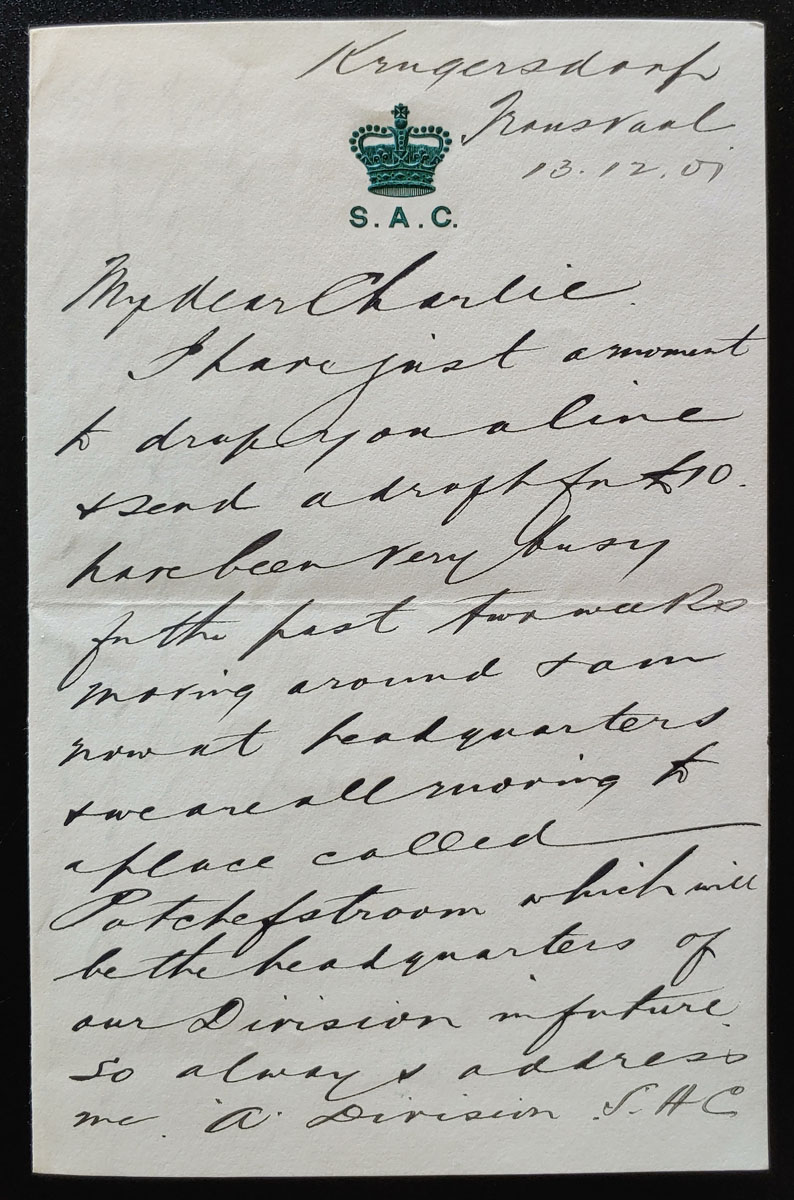 Krugersdorp
Transvaal
13.12.01
S.A.C.
My dear Charlie.
I have just a moment
to drop you a line
& send a draft for £10.
have been very busy
for the past two weeks
moving around & am
now at headquarters
& we are all moving to
a place called
Potchefstroom which will
be the headquarters of
our Division in future.
So always address
me. "A" Division S.A.C